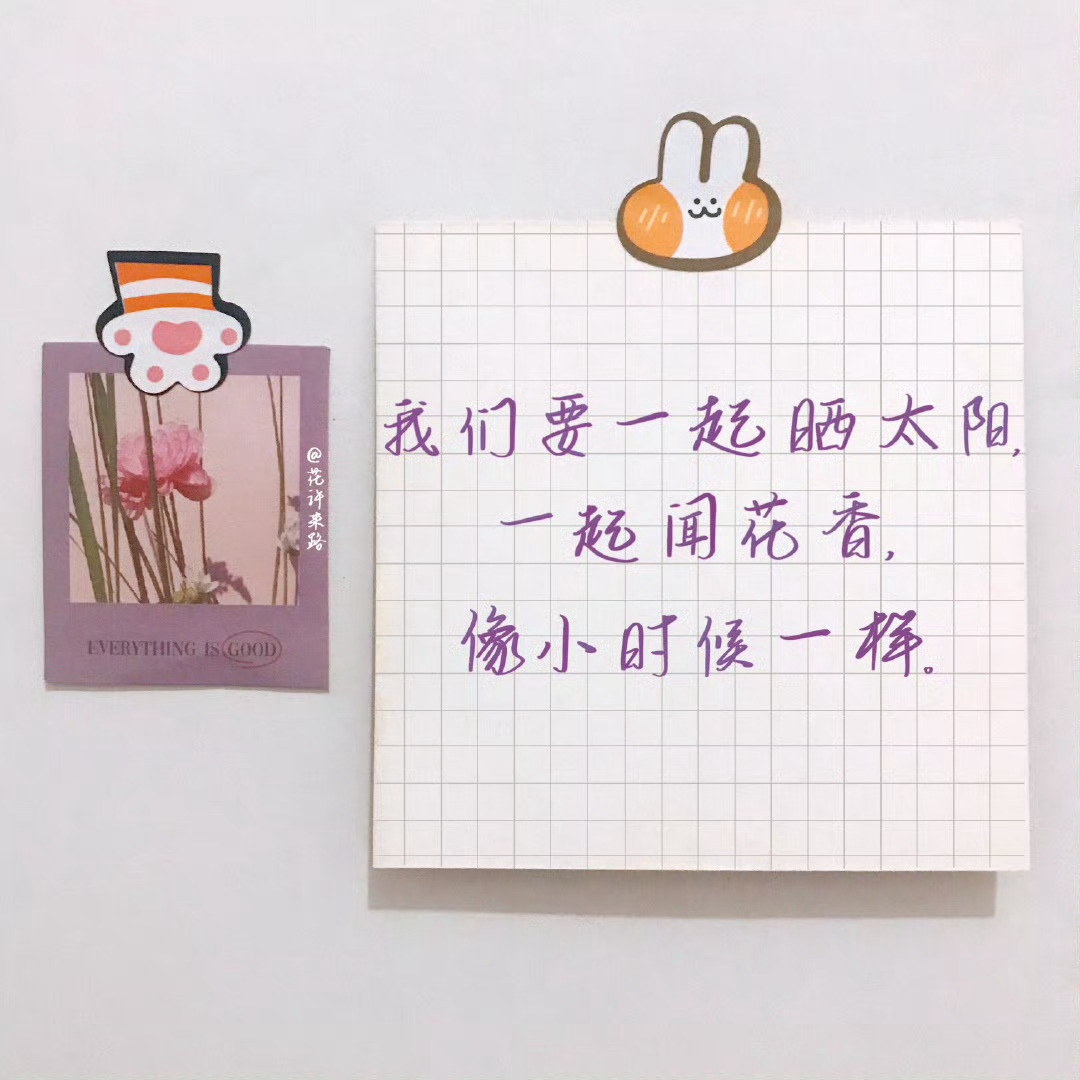 我们要一起晒太阳,
一起闻花香,
像小时候一样。
@花许来路
EVERYTHING IS GOOD